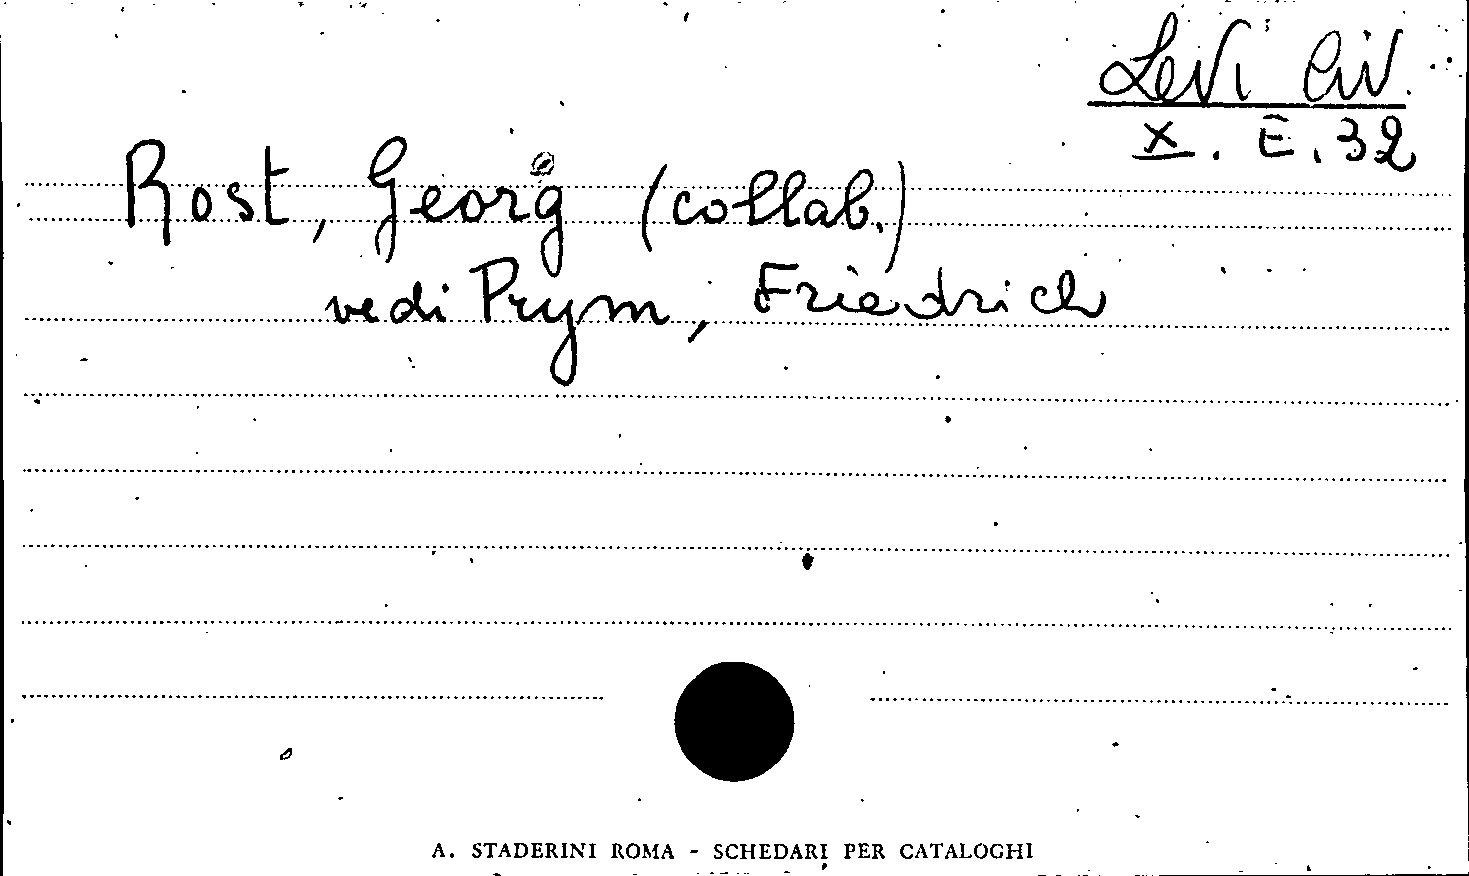 Levi Civ.
X. E. 32
Rost, Georg (collab.)
vedi Prym, Friedrich
A. STADERINI ROMA - SCHEDARI PER CATALOGHI